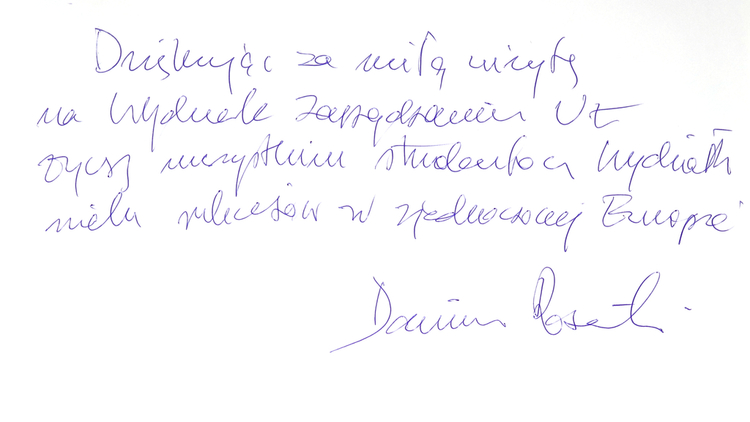 Dziękując za miłą wizytę
na Wydziale Zarządzania UŁ
życzę wszystkim studentom Wydziału
wielu sukcesów w zjednoczonej Europie
Dariusz Rosati